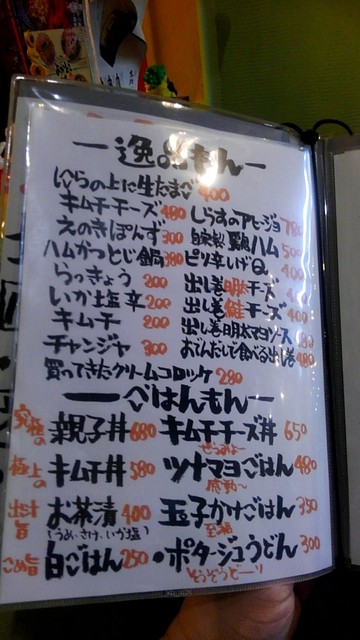 一逸品もん一
いくらの上に生たまご 400
キムチチーズ 480
えのきぽんず 300
ハムかつとじ 380
らっきょう 200
いか塩辛 200
キムチ 200
チャンジャ 300
買ってきたクリームコロッケ 280
しらすのアヒージョ
自家製 鶏ハム
ピリ辛しげQ 400
出し巻明太チーズ
出し巻鮭チーズ 400
出し巻明太マヨソース
おでんだしで食べる出し巻 480
一ごはんもん一
究極の 親子丼 680
キムチチーズ丼 650
ぜっぴん〜
極上の キムチ丼 580
ツナマヨごはん 480
感動〜
出汁旨 お茶漬 400
(うめ、さけ、いか塩)
玉子かけごはん 350
至福
こめ旨 白ごはん 250
・ポタージュうどん 300
ぞうぞうどーッ